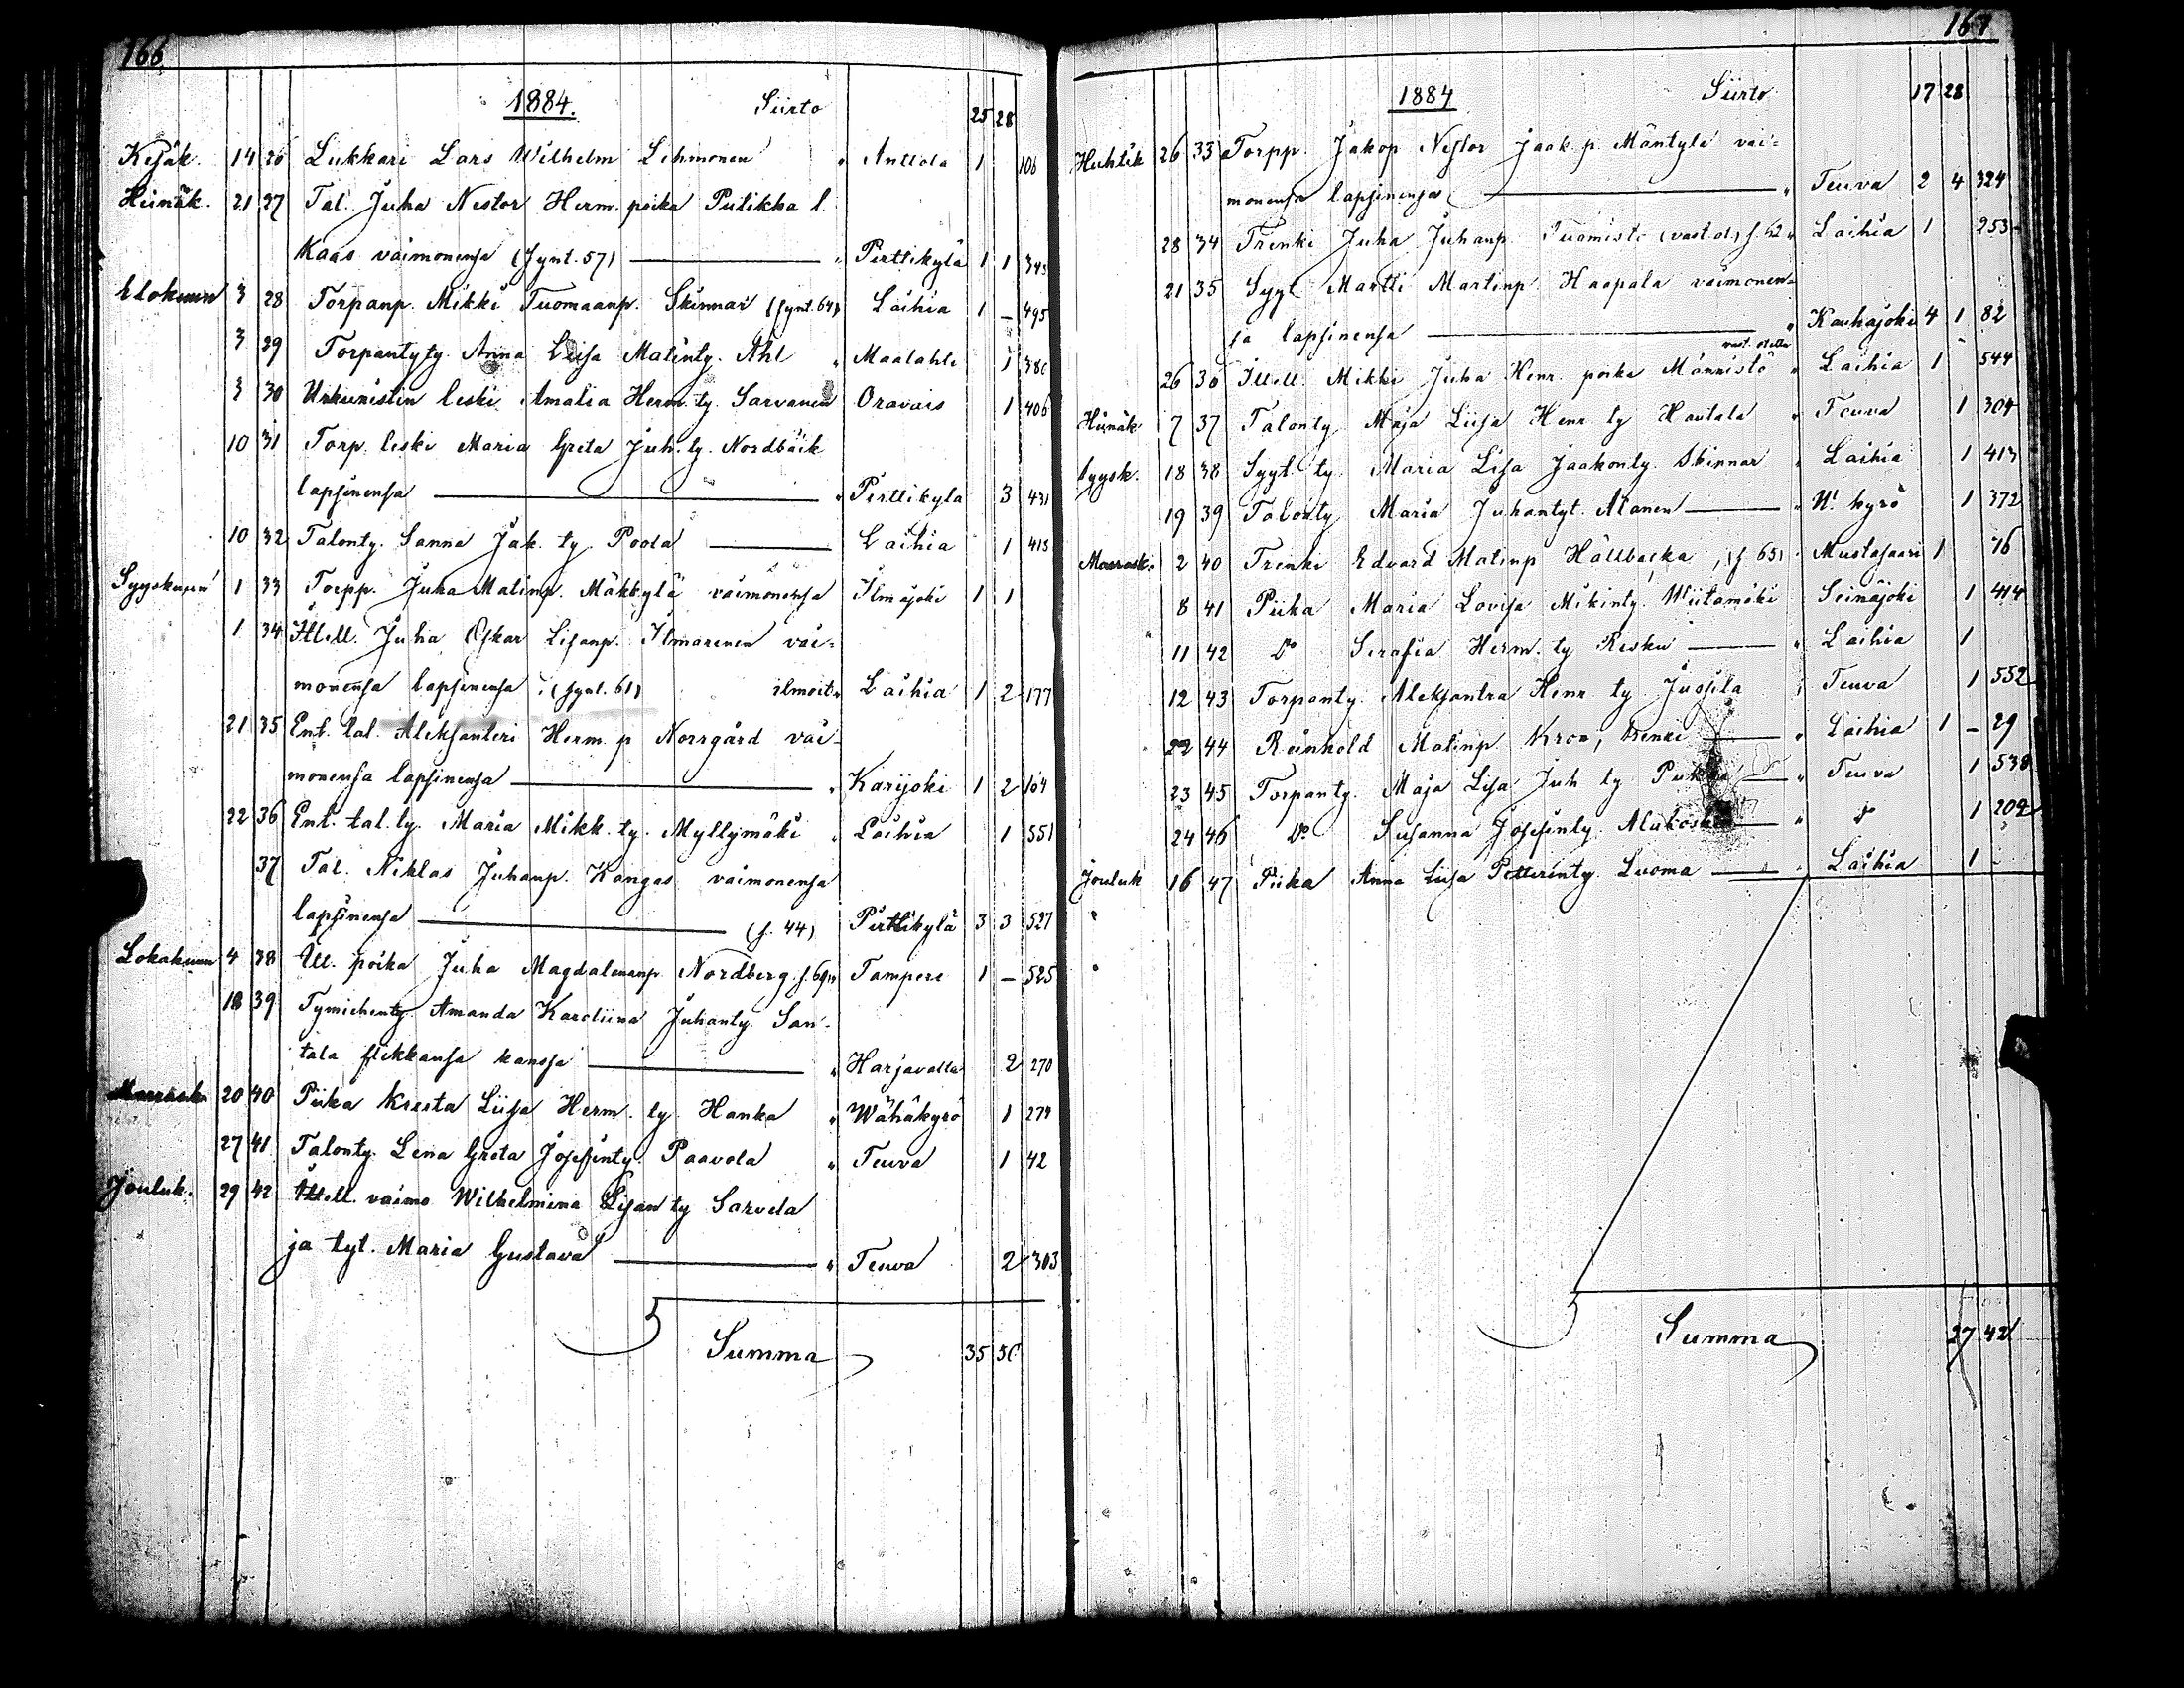 166
1884. Siirto 25 28
Kesäk. 14 26 Lukkari Lars Wilhelm Lehmonen " Anttola 1 106
Heinäk. 21 27 Tal. Juha Nestor Herm. poika Pulikka l.
Kaas vaimonensa (synt. 57) — " Pirttikylä 1 1 345
Elokuun 3 28 Torpanp. Mikki Tuomaanp. Skinnar (synt. 64) Laihia 1 – 495
3 29 Torpantyty. Anna Liisa Matinty. Ahl " Maalahti 1 380
3 30 Urkunistin leski Amalia Herm. ty. Sarvanen Oravais 1 406
10 31 Torp. leski Maria Greta Juh. ty. Nordbäck
lapsinensa — " Pirttikylä 3 431
10 32 Talonty. Sanna Jak. ty. Poola — Laihia 1 415
Syyskuun 1 33 Torpp. Juha Matinp. Mäkkylä vaimonensa Ilmajoki 1 1
1 34 Itsell. Juha Oskar Lisanp. Ilmarinen vai-
monensa lapsinensa (synt. 61) ilmoit. " Laihia 1 2 177
21 35 Ent. tal. Aleksanteri Herm. p Norrgård vai-
monensa lapsinensa — " Karijoki 1 2 164
22 36 Ent. tal. ty. Maria Mikk. ty. Myllymäki " Laihia 1 551
37 Tal. Niklas Juhanp. Kangas vaimonensa
lapsinensa — (s. 44) Pirttikylä 3 3 527
Lokakuun 4 38 Itsell. poika Juha Magdalenanp. Nordberg s. 69 " Tampere 1 – 525
18 39 Tymichenty. Amanda Karoliina Juhanty. San-
tala flikkansa kanssa — " Harjavalta 2 270
Marrask. 20 40 Piika Kreeta Liisa Herm. ty. Hanka " Wähäkyrö 1 274
27 41 Talonty. Lena Greta Josefinty. Paavola " Teuva 1 42
Jouluk. 29 42 Itsell. vaimo Wilhelmina Lisanty Sarvela
ja tyt. Maria Gustava — " Teuva 2 303
Summa 35 50
167
1884 Siirto 17 28
Huhtik 26 33 Torpp. Jakop Nestor Jaak. p. Mäntylä vai-
monensa lapsinensa — " Teuva 2 4 324
28 34 Trenki Juha Juhanp. Tuomisto (vast. ot.) s. 62 " Laihia 1 253
21 35 Syyt. Martti Martinp. Haapala vaimonen-
sa lapsinensa — " Kauhajoki 4 1 82
vast. otettu
26 36 Itsell. Mikki Juha Henr. poika Männistö " Laihia 1 544
Heinäk 7 37 Talonty Maja Liisa Henr ty Hautala " Teuva 1 304
Syysk. 18 38 Syyt. ty. Maria Lisa Jaakonty. Skinnar " Laihia 1 413
19 39 Talonty Maria Juhantyt. Alanen — " W. kyrö 1 372
Marrask. 2 40 Trenki Edvard Matinp Hällbacka, (s 65) " Mustasaari 1 76
8 41 Piika Maria Lovisa Mikinty. Wiitamäki Seinäjoki 1 414
11 42 Do Serafia Herm. ty Risku — " Laihia 1
12 43 Torpanty. Aleksantra Henr ty Jussila " Teuva 1 552
22 44 Reinhold Matinp. Kron, trenki — " Laihia 1 – 29
23 45 Torpanty. Maja Lisa Juh ty — " Teuva 1 538
24 46 Do Susanna Josefinty. — " Do 1 202
Jouluk 16 47 Piika Anna Liisa Petterinty. Luoma — " Laihia 1
Summa 27 42